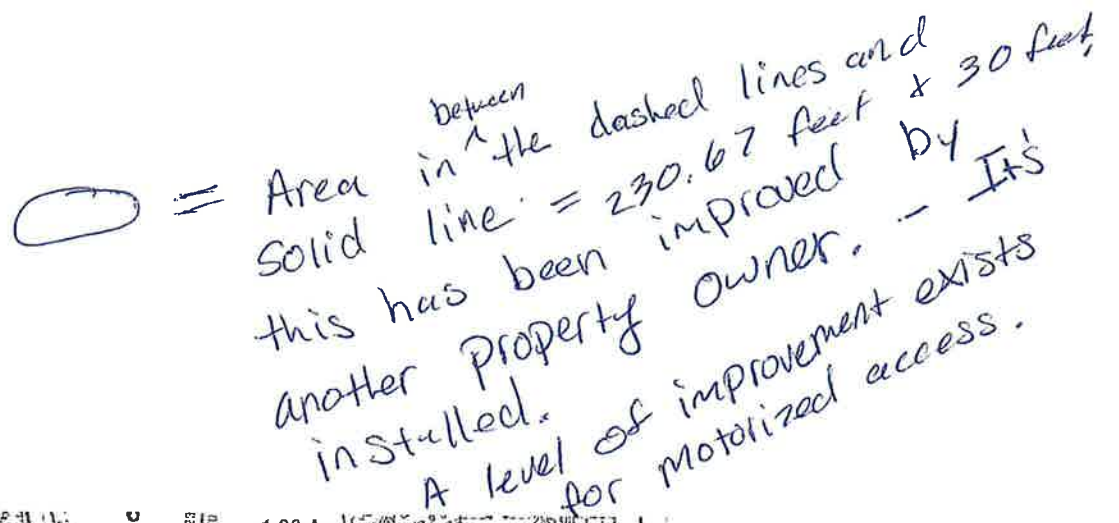 = Area in ^between the dashed lines and
solid line = 230.67 feet x 30 feet,
this has been improved by
another property owner. - It's
installed.
A level of improvement exists
for motorized access.